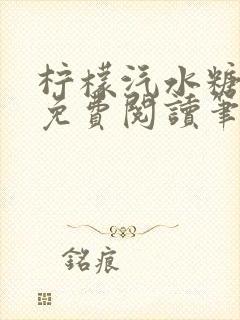 柠檬汽水糖
免費閱讀筆
銘痕